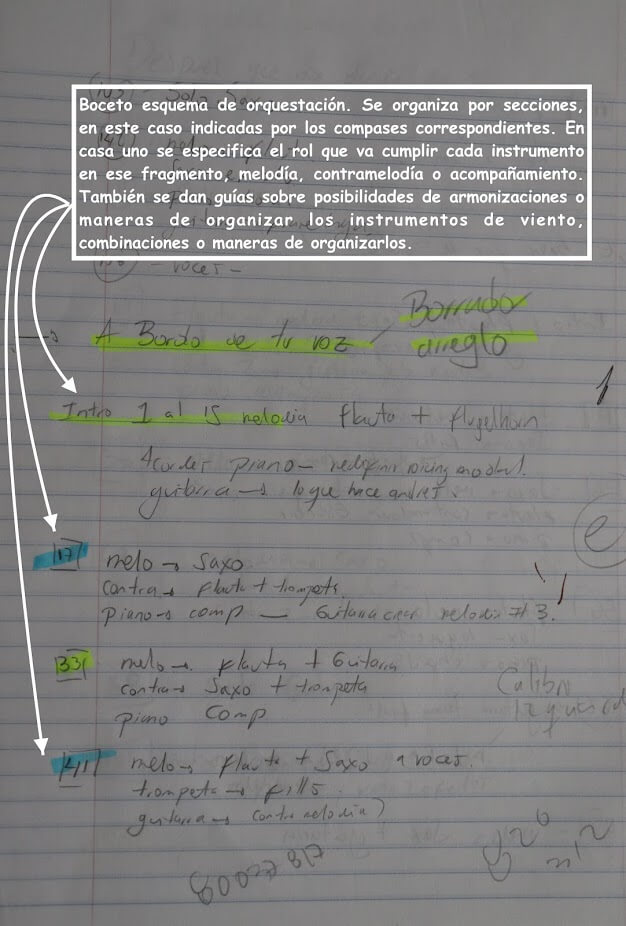 Boceto esquema de orquestación. Se organiza por secciones,
en este caso indicadas por los compases correspondientes. En
casa uno se especifica el rol que va cumplir cada instrumento
en ese fragmento, melodía, contramelodía o acompañamiento.
También se dan guías sobre posibilidades de armonizaciones o
maneras de organizar los instrumentos de viento,
combinaciones o maneras de organizarlos.
- voces -
A Bordo de tu voz / Borrador
arreglo
Intro 1 al 15 melodia flauta + flugelhorn
Acordes piano - redefinir voicing modal.
guitarra → lo que hace andres.
17 melo → Saxo.
contra → flauta + trompeta.
Piano → comp — Guitarra crear melodia # 3.
33 melo → flauta + Guitarra
contra → Saxo + trompeta
piano Comp
41 melo → flauta + Saxo a voces.
trompeta → fills.
guitarra → contramelodia